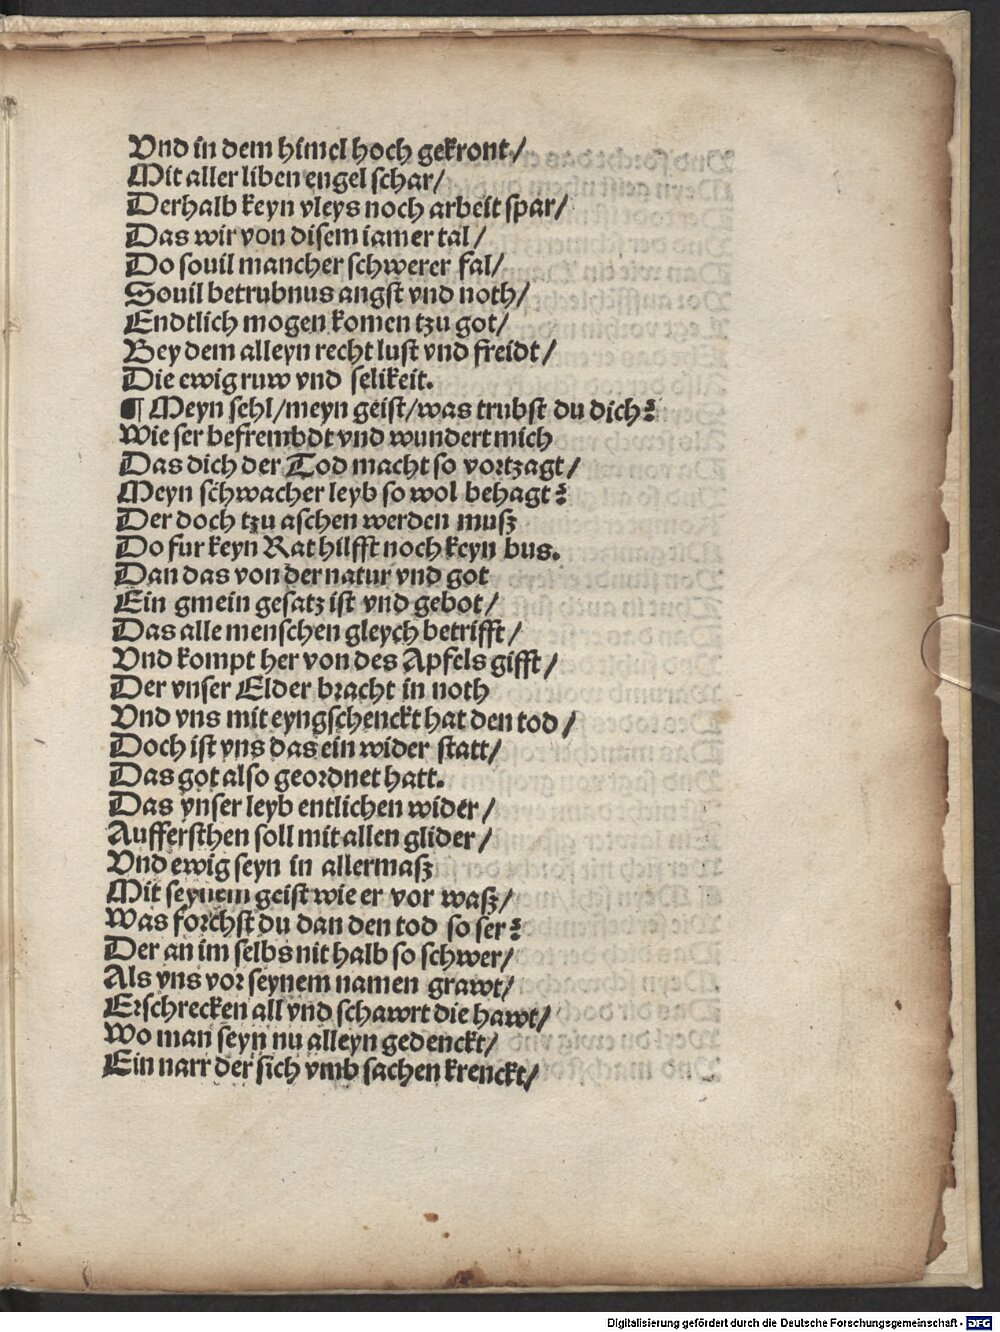 Vnd in dem himel hoch gekront/
Mit aller liben engel schar/
Derhalb keyn vleys noch arbeit spar/
Das wir von disem iamer tal/
Do souil mancher schwerer fal/
Souil betrubnus angst vnd noth/
Endtlich mogen komen tzu got/
Bey dem alleyn recht lust vnd freidt/
Die ewig ruw vnd selikeit.
¶ Meyn sehl/meyn geist/was trubst du dich?
Wie ser befrembdt vnd wundert mich
Das dich der Tod macht so vortzagt/
Meyn schwacher leyb so wol behagt?
Der doch tzu aschen werden musz
Do fur keyn Rat hilfft noch keyn bus.
Dan das von der natur vnd got
Ein gmein gesatz ist vnd gebot/
Das alle menschen gleych betrifft/
Vnd kompt her von des Apfels gifft/
Der vnser Elder bracht in noth
Vnd vns mit eyngschenckt hat den tod/
Doch ist vns das ein wider statt/
Das got also geordnet hatt.
Das vnser leyb entlichen wider/
Auffersthen soll mit allen glider/
Vnd ewig seyn in allermasz
Mit seynem geist wie er vor wasz/
Was forchst du dan den tod so ser?
Der an im selbs nit halb so schwer/
Als vns vor seynem namen grawt/
Erschrecken all vnd schawrt die hawt/
Wo man seyn nu alleyn gedenckt/
Ein narr der sich vmb sachen krenckt/
Digitalisierung gefördert durch die Deutsche Forschungsgemeinschaft - DFG